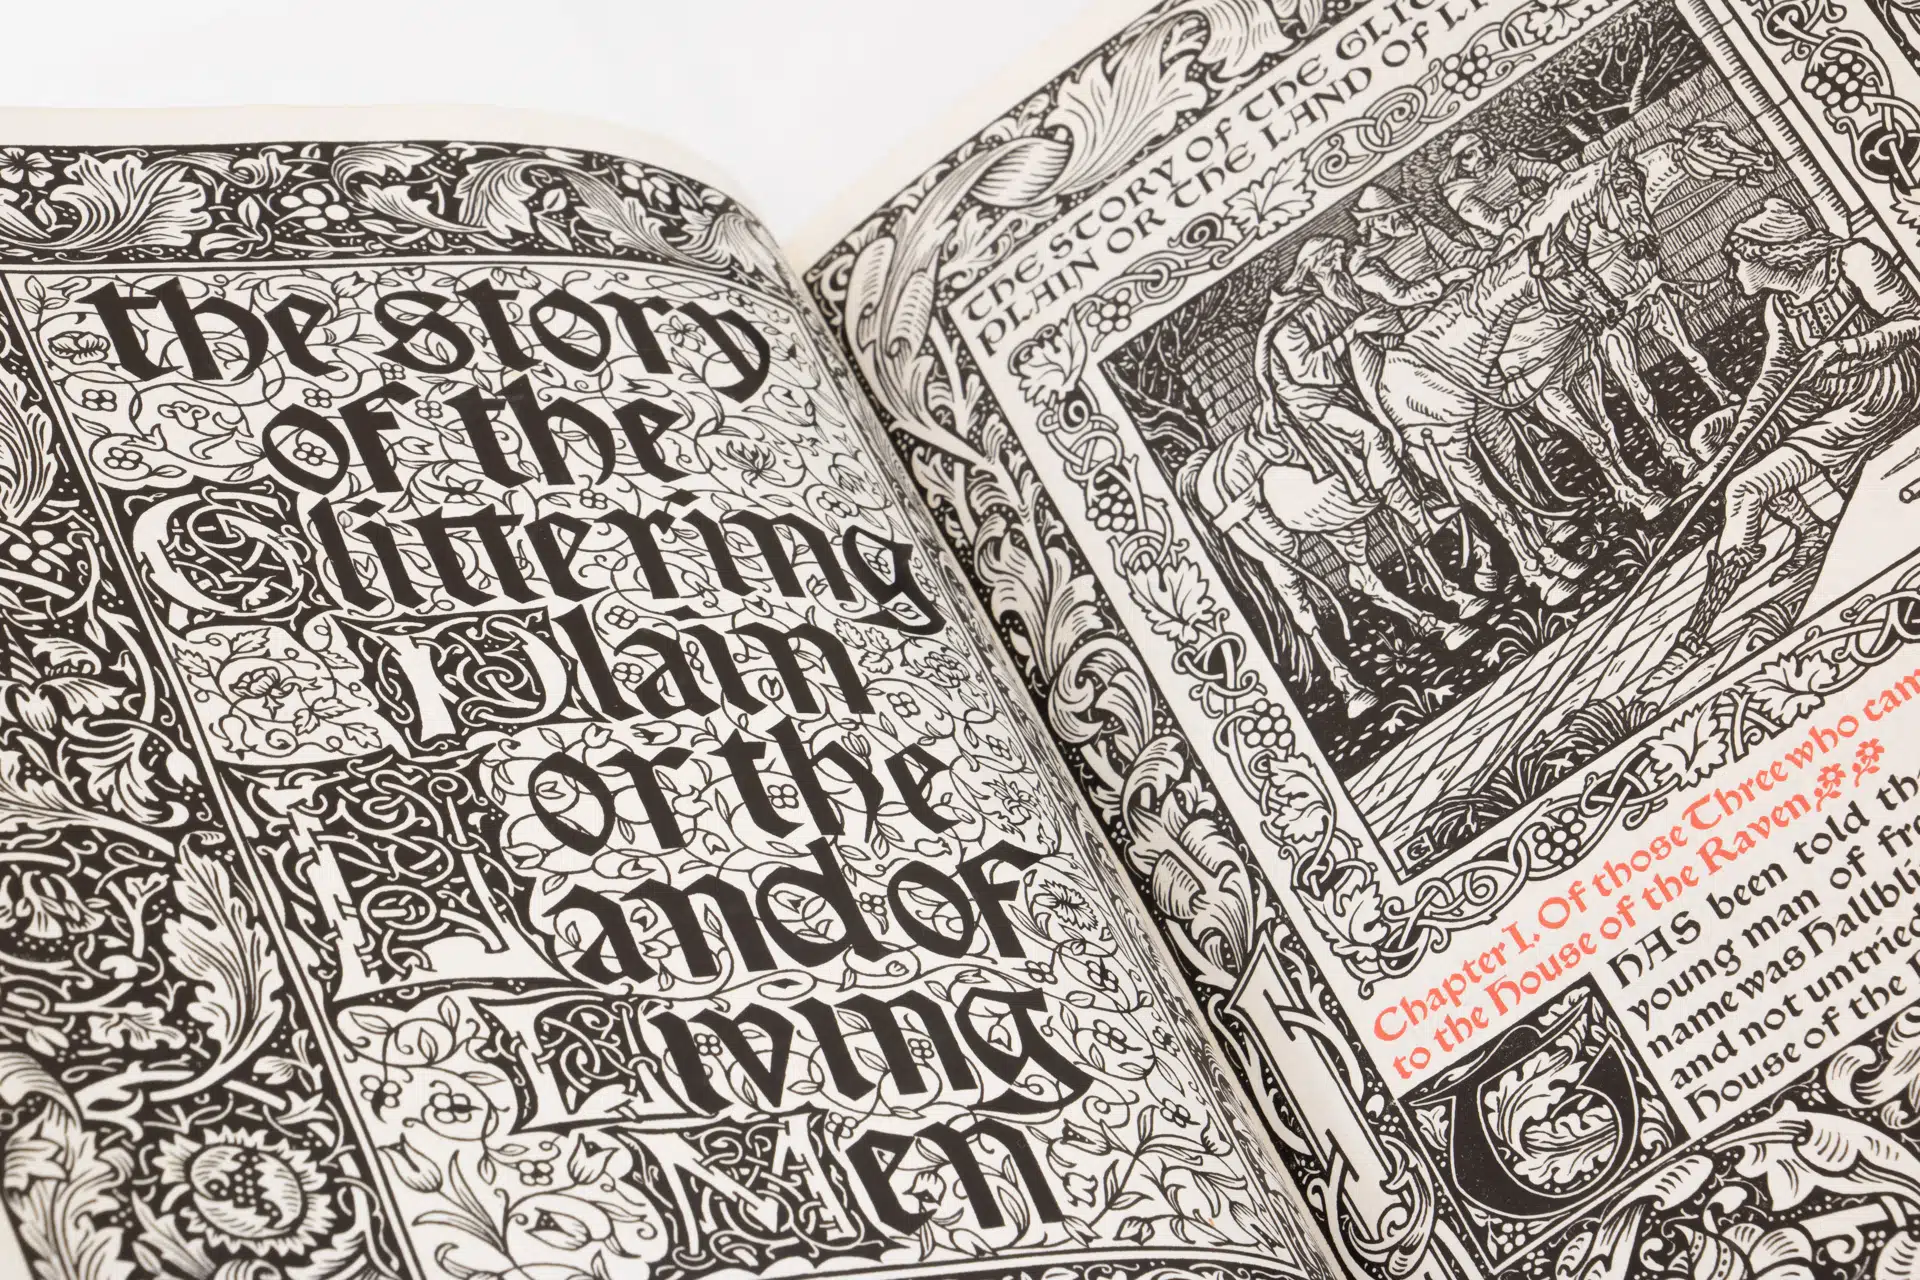 the story
of the
Glittering
Plain
or the
Land of
Living
Men
THE STORY OF THE GLI
PLAIN OR THE LAND OF LI
Chapter I. Of those Three who cam
to the House of the Raven
IT HAS been told th
young man of fre
name was Hallbli
and not untried
house of the